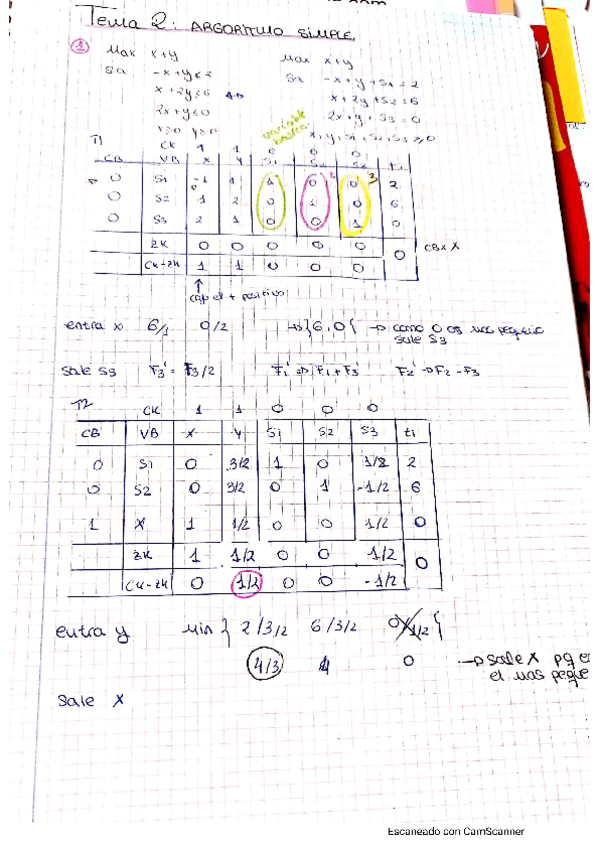 Tema 2: ARGORITMO SIMPLE.
1 Max x+y Max x+y
Sa -x+y≤2 Sa -x+y+S1=2
x+2y≤6 x+2y+S2=6
2x+y≤0 2x+y+S3=0
x≥0 y≥0 x,y,S1,S2,S3≥0
variable
T1 CK 1 1 0 0 0
CB VB X Y S1 S2 S3 ti
0 S1 -1 1 1 0 0 2
0 S2 1 2 0 1 0 6
0 S3 2 1 0 0 1 0
ZK 0 0 0 0 0 0 CB x X
CK-ZK 1 1 0 0 0
↑
el + positivo
entra x 6/1 0/2 →}6,0{ → como 0 es mas pequeño
sale S3
Sale S3 F3' = F3/2 F1' ⇒ F1+F3' F2' → F2-F3
T2 CK 1 1 0 0 0
CB VB X Y S1 S2 S3 ti
0 S1 0 3/2 1 0 1/2 2
0 S2 0 3/2 0 1 -1/2 6
1 X 1 1/2 0 0 1/2 0
ZK 1 1/2 0 0 1/2 0
CK-ZK 0 1/2 0 0 -1/2
entra y Min } 2/3/2 6/3/2 0/1/2 {
4/3 4 0 → sale X pq e
el mas peque
Sale X
Escaneado con CamScanner